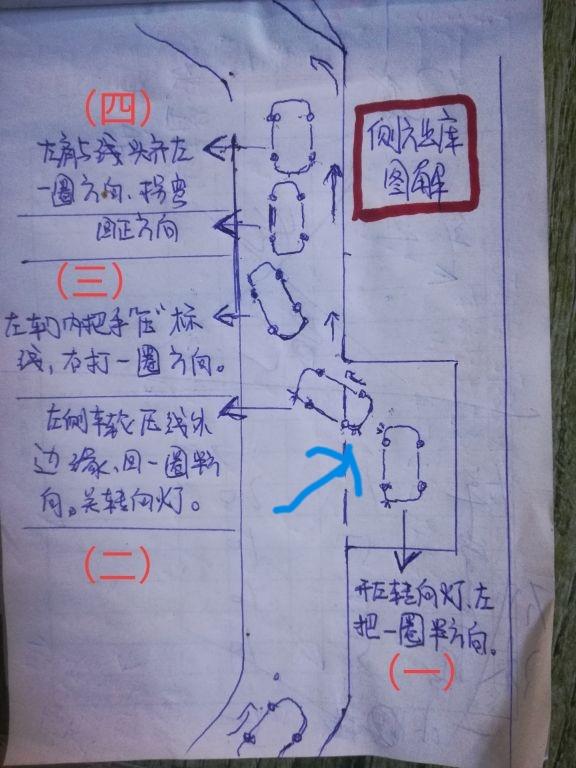 (四)
侧方出库
图解
左肩与线头齐左
一圈方向、拐弯
回正方向
(三)
左车门内把手"压"标
线，右打一圈方向。
左侧车轮压线外
边缘、回一圈半方
向。关转向灯。
(二)
开左转向灯、左
把一圈半方向。
(一)